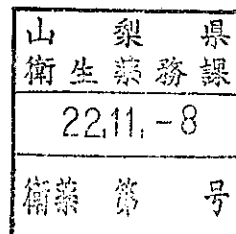 山梨県
衛生薬務課
22.11.-8
衛薬第 号